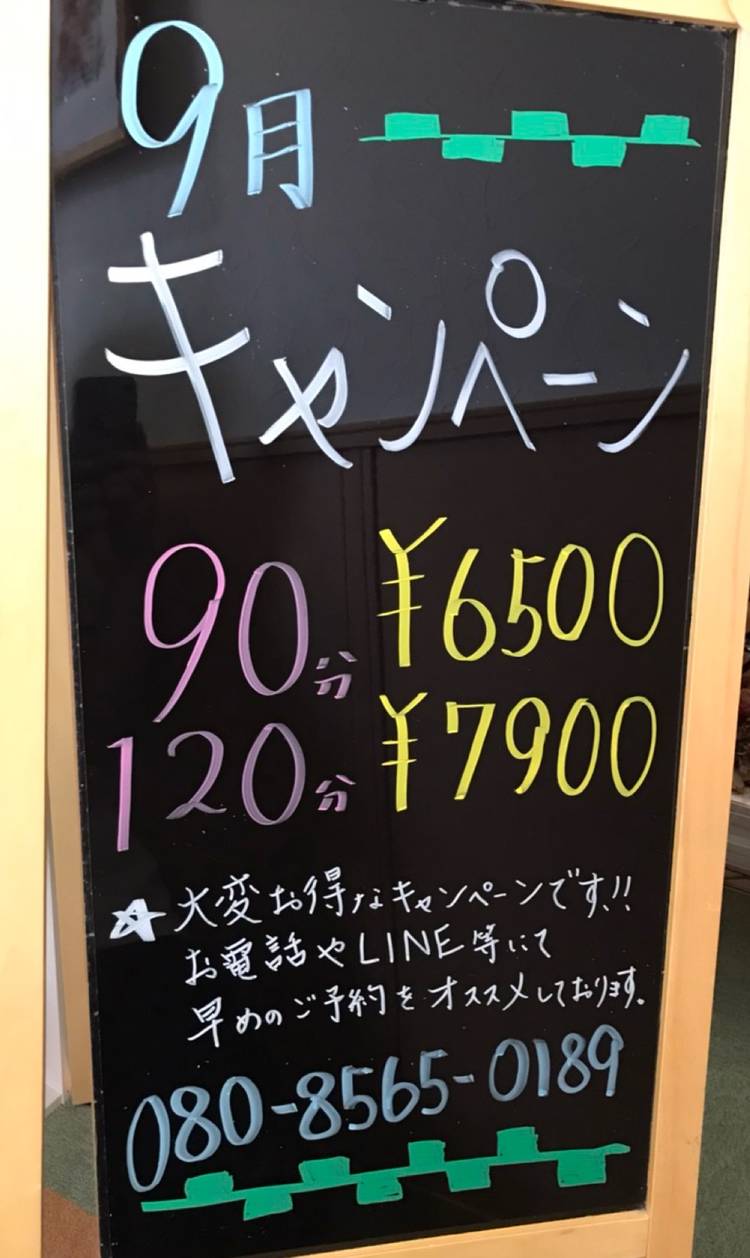 9月
キャンペーン
90分 ¥6500
120分 ¥7900
★大変お得なキャンペーンです!!
お電話やLINE等にて
早めのご予約をオススメしております。
080-8565-0189